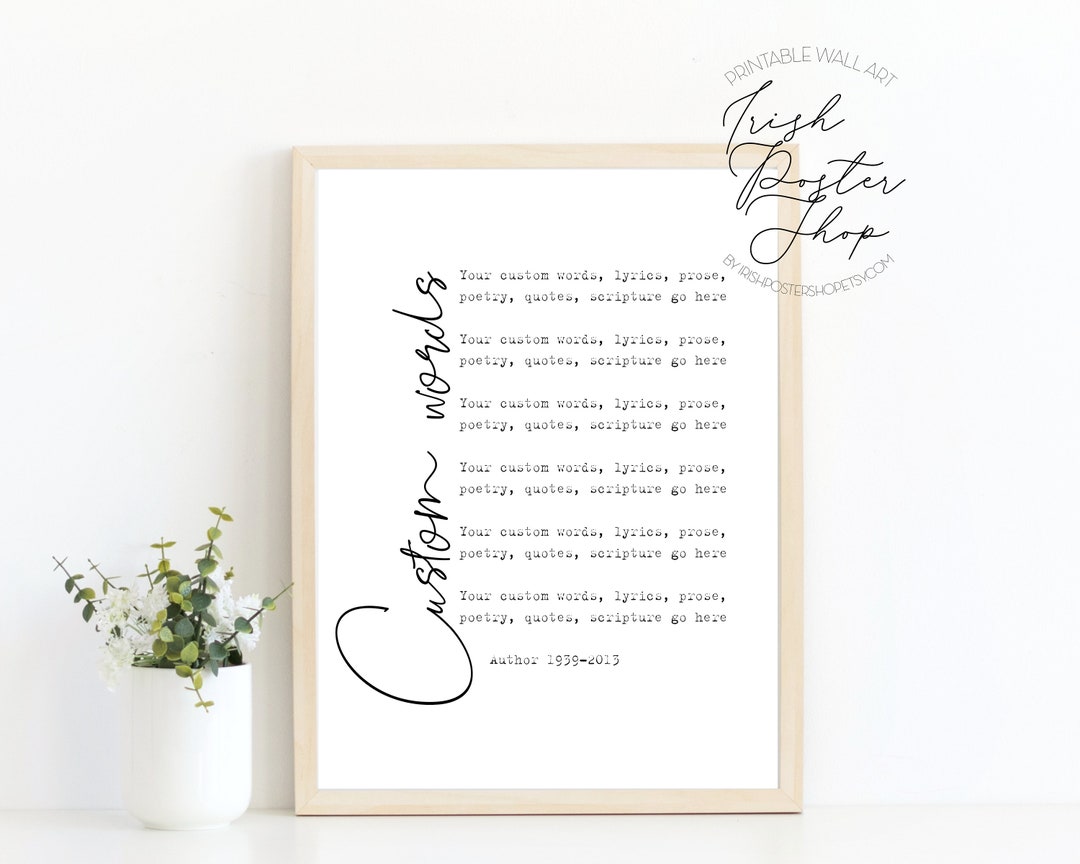 PRINTABLE WALL ART
Irish
Poster
Shop
BY IRISHPOSTERSHOP.ETSY.COM
Custom words
Your custom words, lyrics, prose,
poetry, quotes, scripture go here
Your custom words, lyrics, prose,
poetry, quotes, scripture go here
Your custom words, lyrics, prose,
poetry, quotes, scripture go here
Your custom words, lyrics, prose,
poetry, quotes, scripture go here
Your custom words, lyrics, prose,
poetry, quotes, scripture go here
Your custom words, lyrics, prose,
poetry, quotes, scripture go here
Author 1939-2013